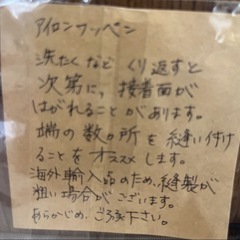 アイロンワッペン
洗たくなど くり返すと
次第に、接着面が
はがれることがあります。
端の数ヶ所を縫い付け
ることをオススメします。
海外輸入品のため、縫製が
粗い場合がございます。
あらかじめ、ご了承下さい。